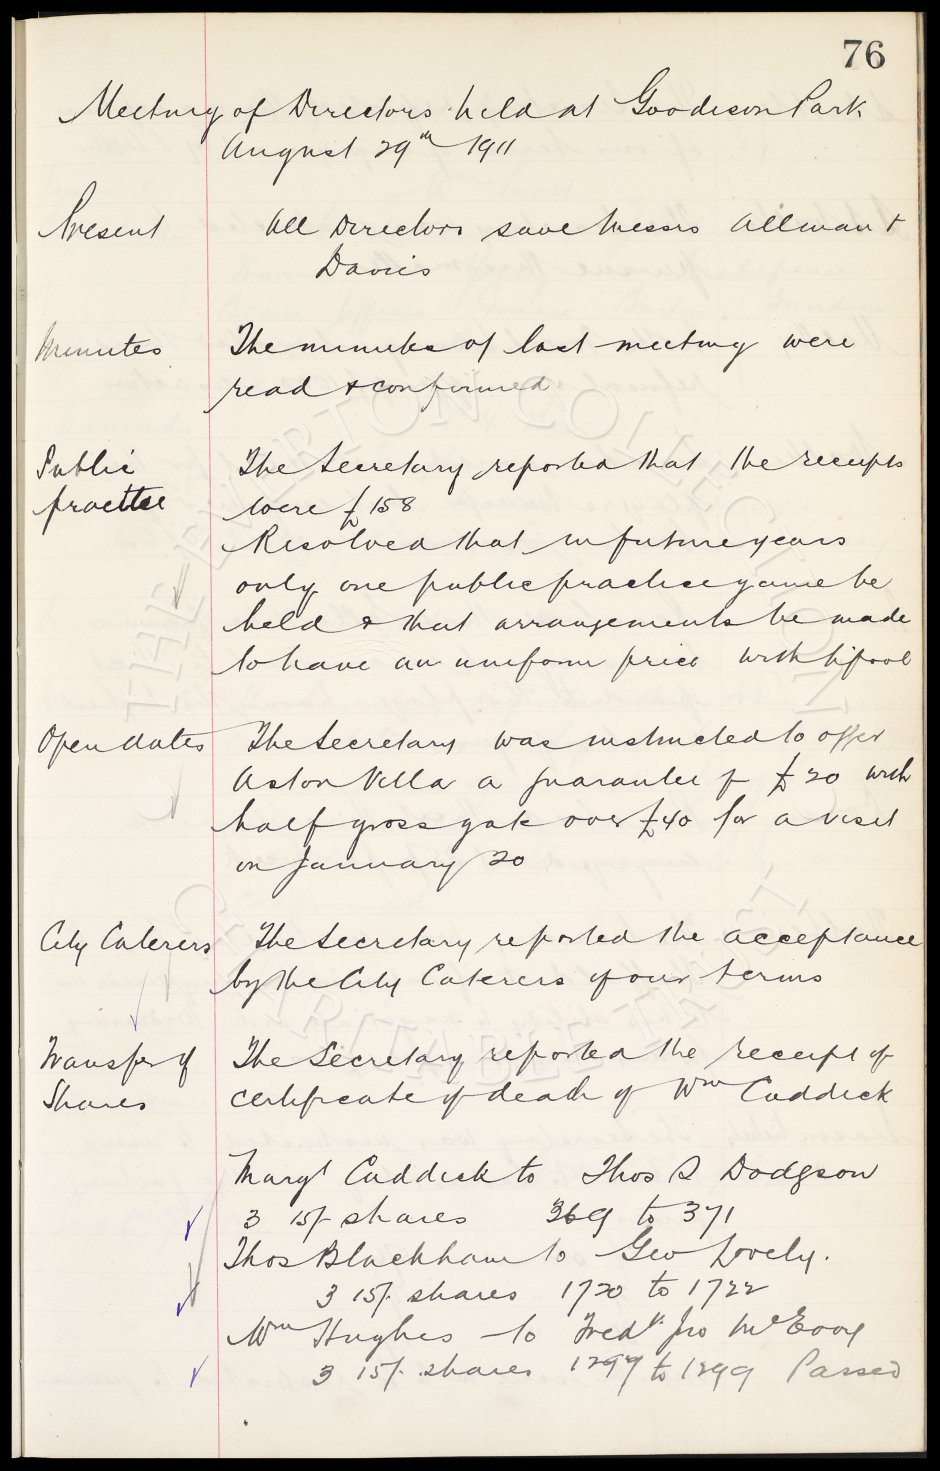 76
Meeting of Directors held at Goodison Park
August 29th 1911
Present All Directors save Messrs Allman &
Davies
Minutes The minutes of last meeting were
read & confirmed
Public The Secretary reported that the receipts
practice were £158
Resolved that in future years
only one public practice game be
held & that arrangements be made
to have an uniform price with L'pool
Open dates The Secretary was instructed to offer
Aston Villa a guarantee of £20 with
half gross gate over £40 for a visit
on January 20
City Caterers The Secretary reported the acceptance
by the City Caterers of our terms
Transfer of The Secretary reported the receipt of
Shares certificate of death of Wm Cuddick
Margt Cuddick to Thos S Dodgson
3 15/- shares 369 to 371
Thos Blackham to Geo Lovely.
3 15/- shares 1720 to 1722
Wm Hughes to Fredk Jno McEvoy
3 15/- shares 1297 to 1299 Passed
THE EVERTON COLLECTION
CHARITABLE TRUST